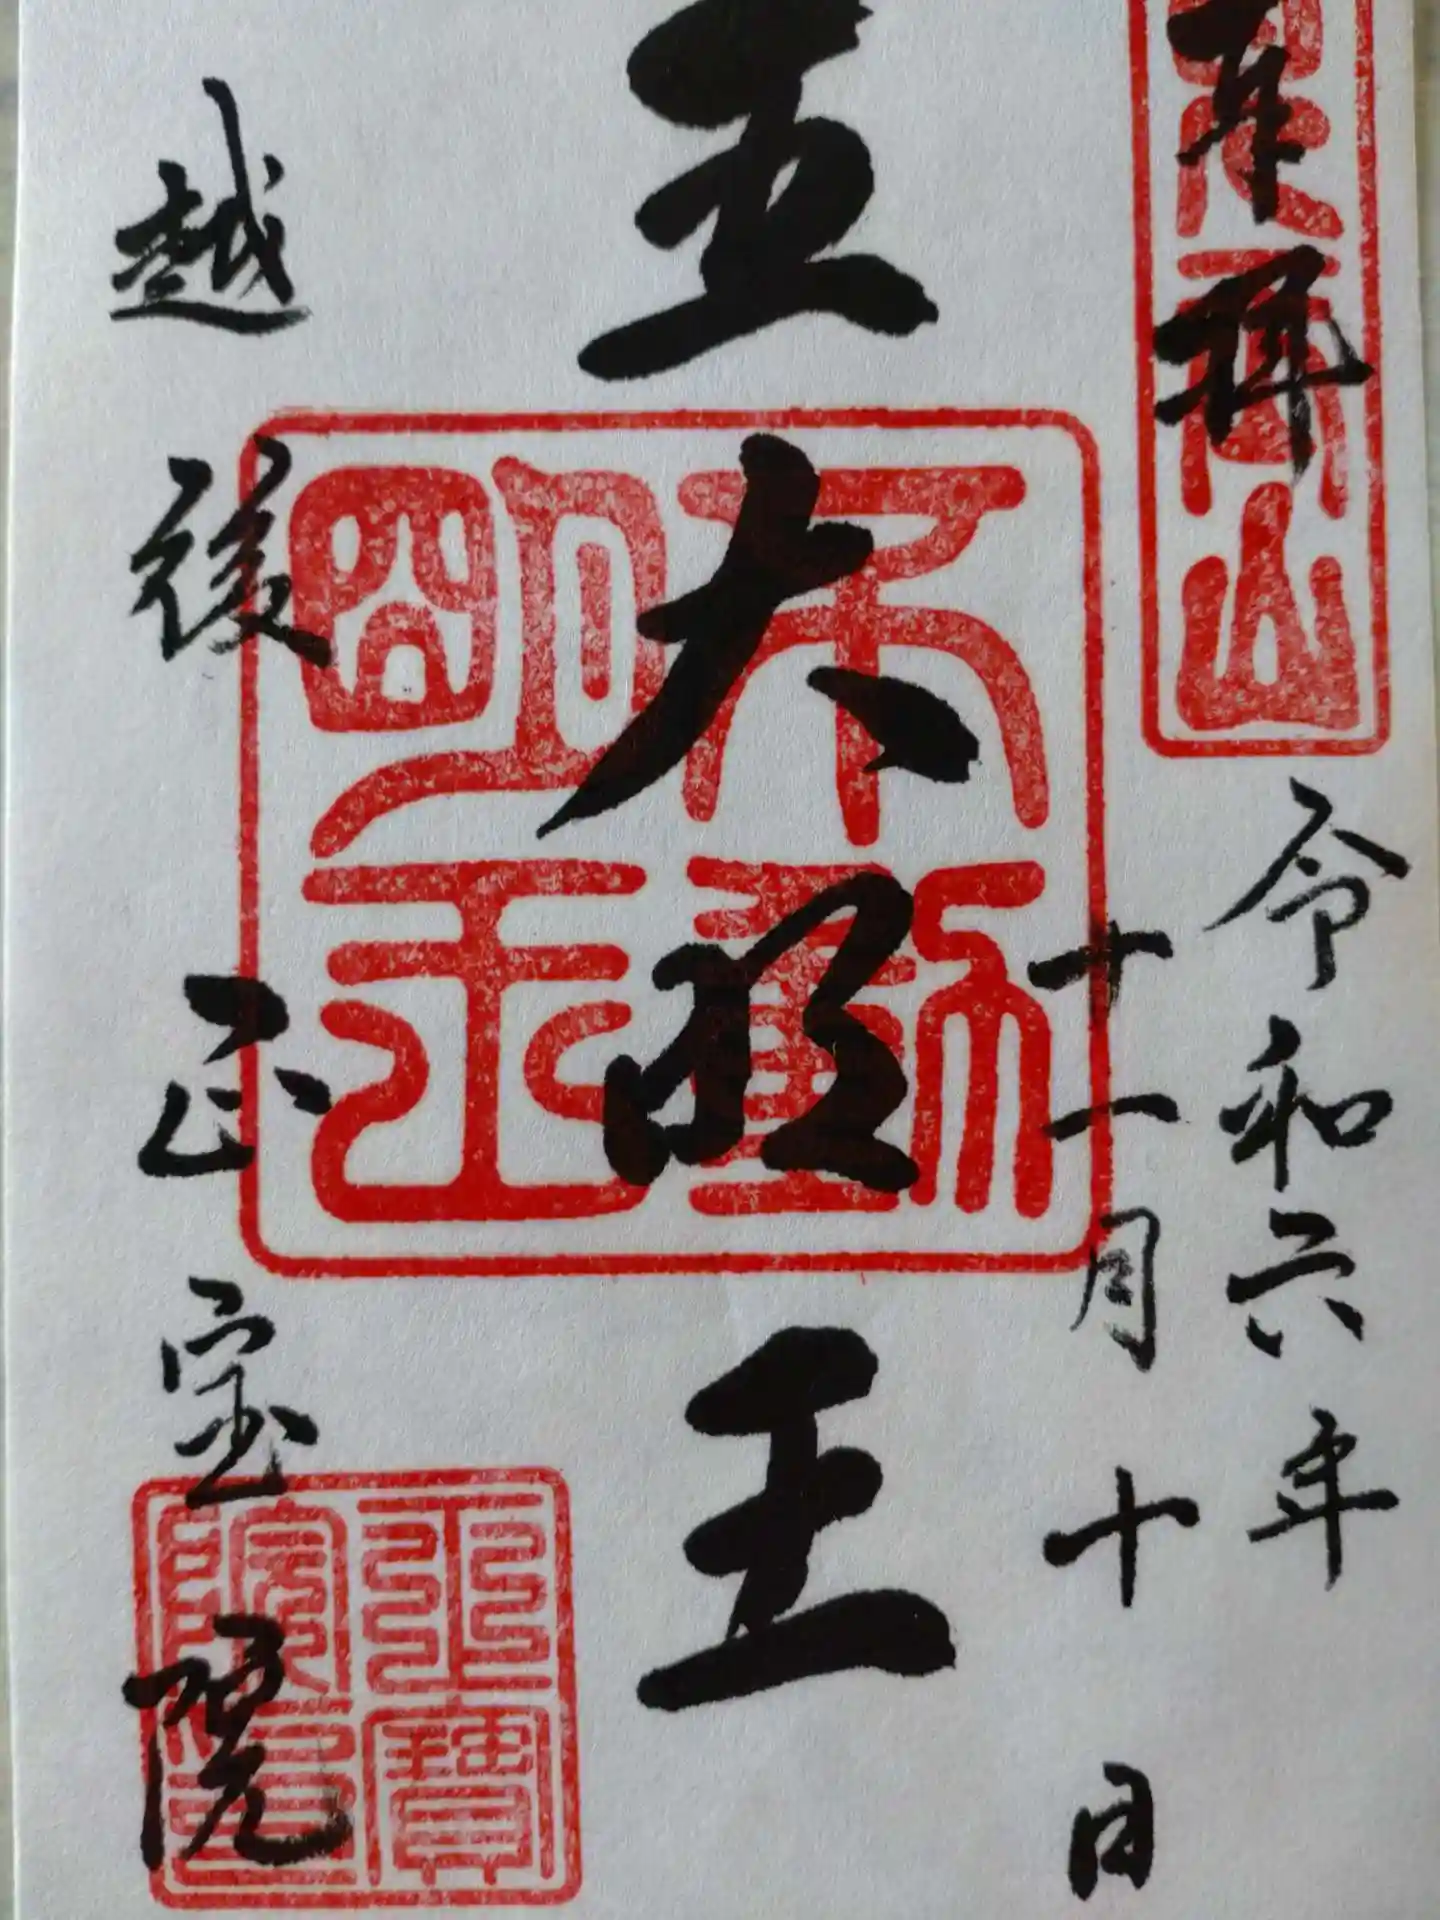 奉拝
山
令和六年
十一月十日
五大明王
不動
明王
越後 正宝院
正寶
院印